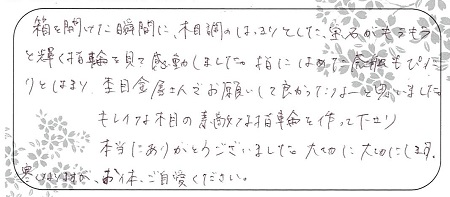 箱を開けた瞬間に、木目調のはっきりとした、宝石がキラキラ
と輝く指輪を見て感動しました。指にはめた感触もピッタ
リとはまり、杢目金屋さんでお願いして良かったなーと思いました。
キレイな木目の素敵な指輪を作って下さり
本当にありがとうございました。大切に大切にします。
寒くなりますが、お体、ご自愛ください。